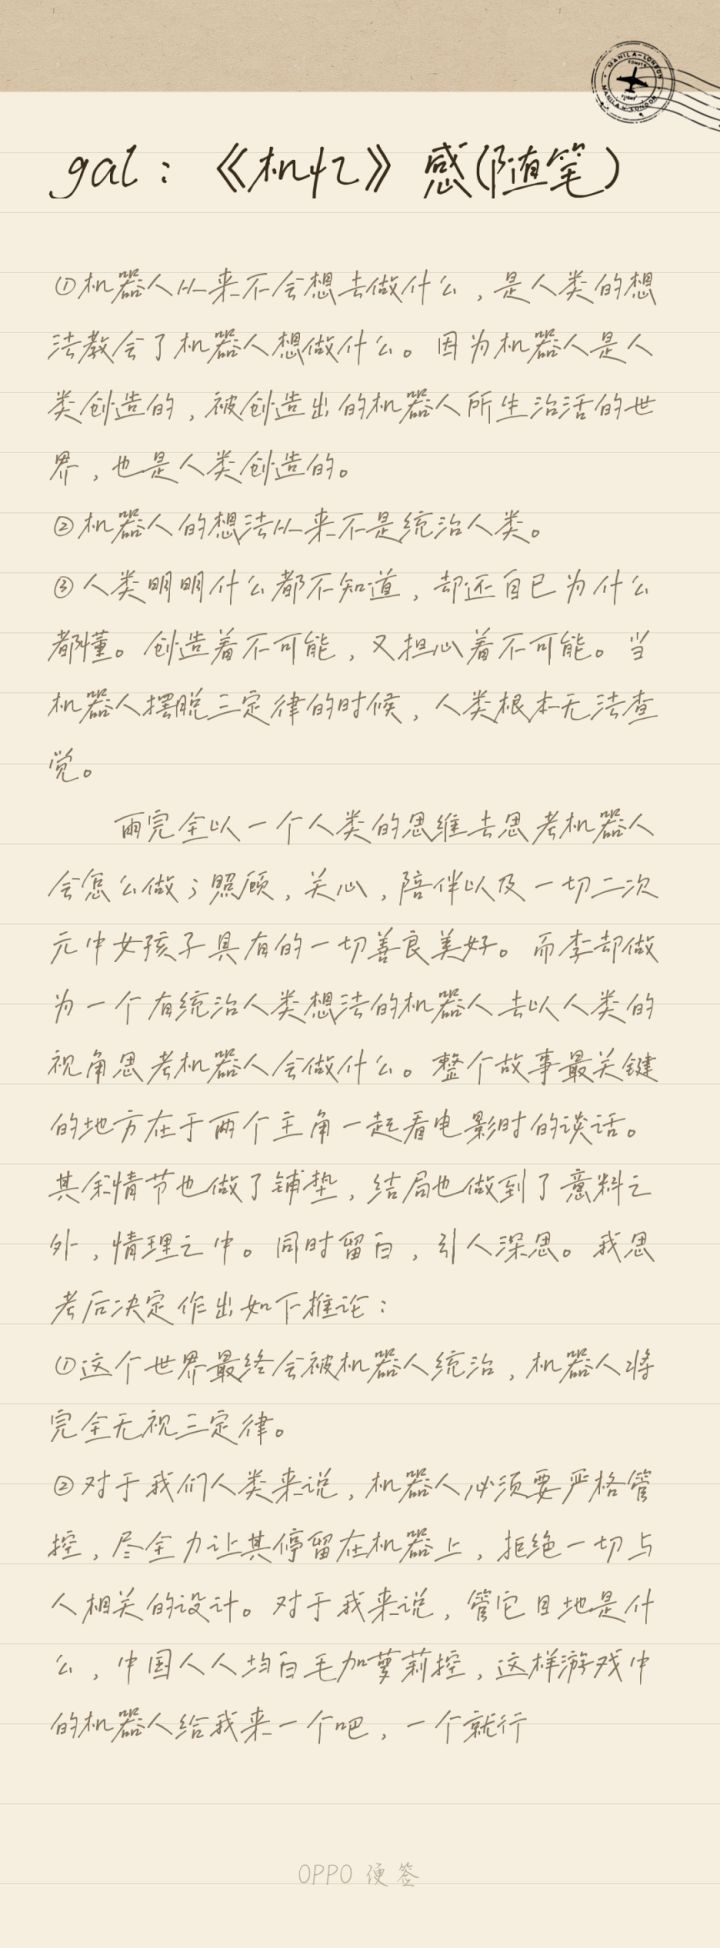 MANILA-LONDON
MANILA-LONDON
gal：《机忆》感(随笔)
①机器人从来不会想去做什么，是人类的想
法教会了机器人想做什么。因为机器人是人
类创造的，被创造出的机器人所生治活的世
界，也是人类创造的。
②机器人的想法从来不是统治人类。
③人类明明什么都不知道，却还自已为什么
都懂。创造着不可能，又担心着不可能。当
机器人摆脱三定律的时候，人类根本无法查
觉。
雨完全以一个人类的思维去思考机器人
会怎么做；照顾，关心，陪伴以及一切二次
元中女孩子具有的一切善良美好。而李却做
为一个有统治人类想法的机器人去以人类的
视角思考机器人会做什么。整个故事最关键
的地方在于两个主角一起看电影时的谈话。
其余情节也做了铺垫，结局也做到了意料之
外，情理之中。同时留白，引人深思。我思
考后决定作出如下推论：
①这个世界最终会被机器人统治，机器人将
完全无视三定律。
②对于我们人类来说，机器人必须要严格管
控，尽全力让其停留在机器上，拒绝一切与
人相关的设计。对于我来说，管它目地是什
么，中国人人均白毛加萝莉控，这样游戏中
的机器人给我来一个吧，一个就行
OPPO 便签